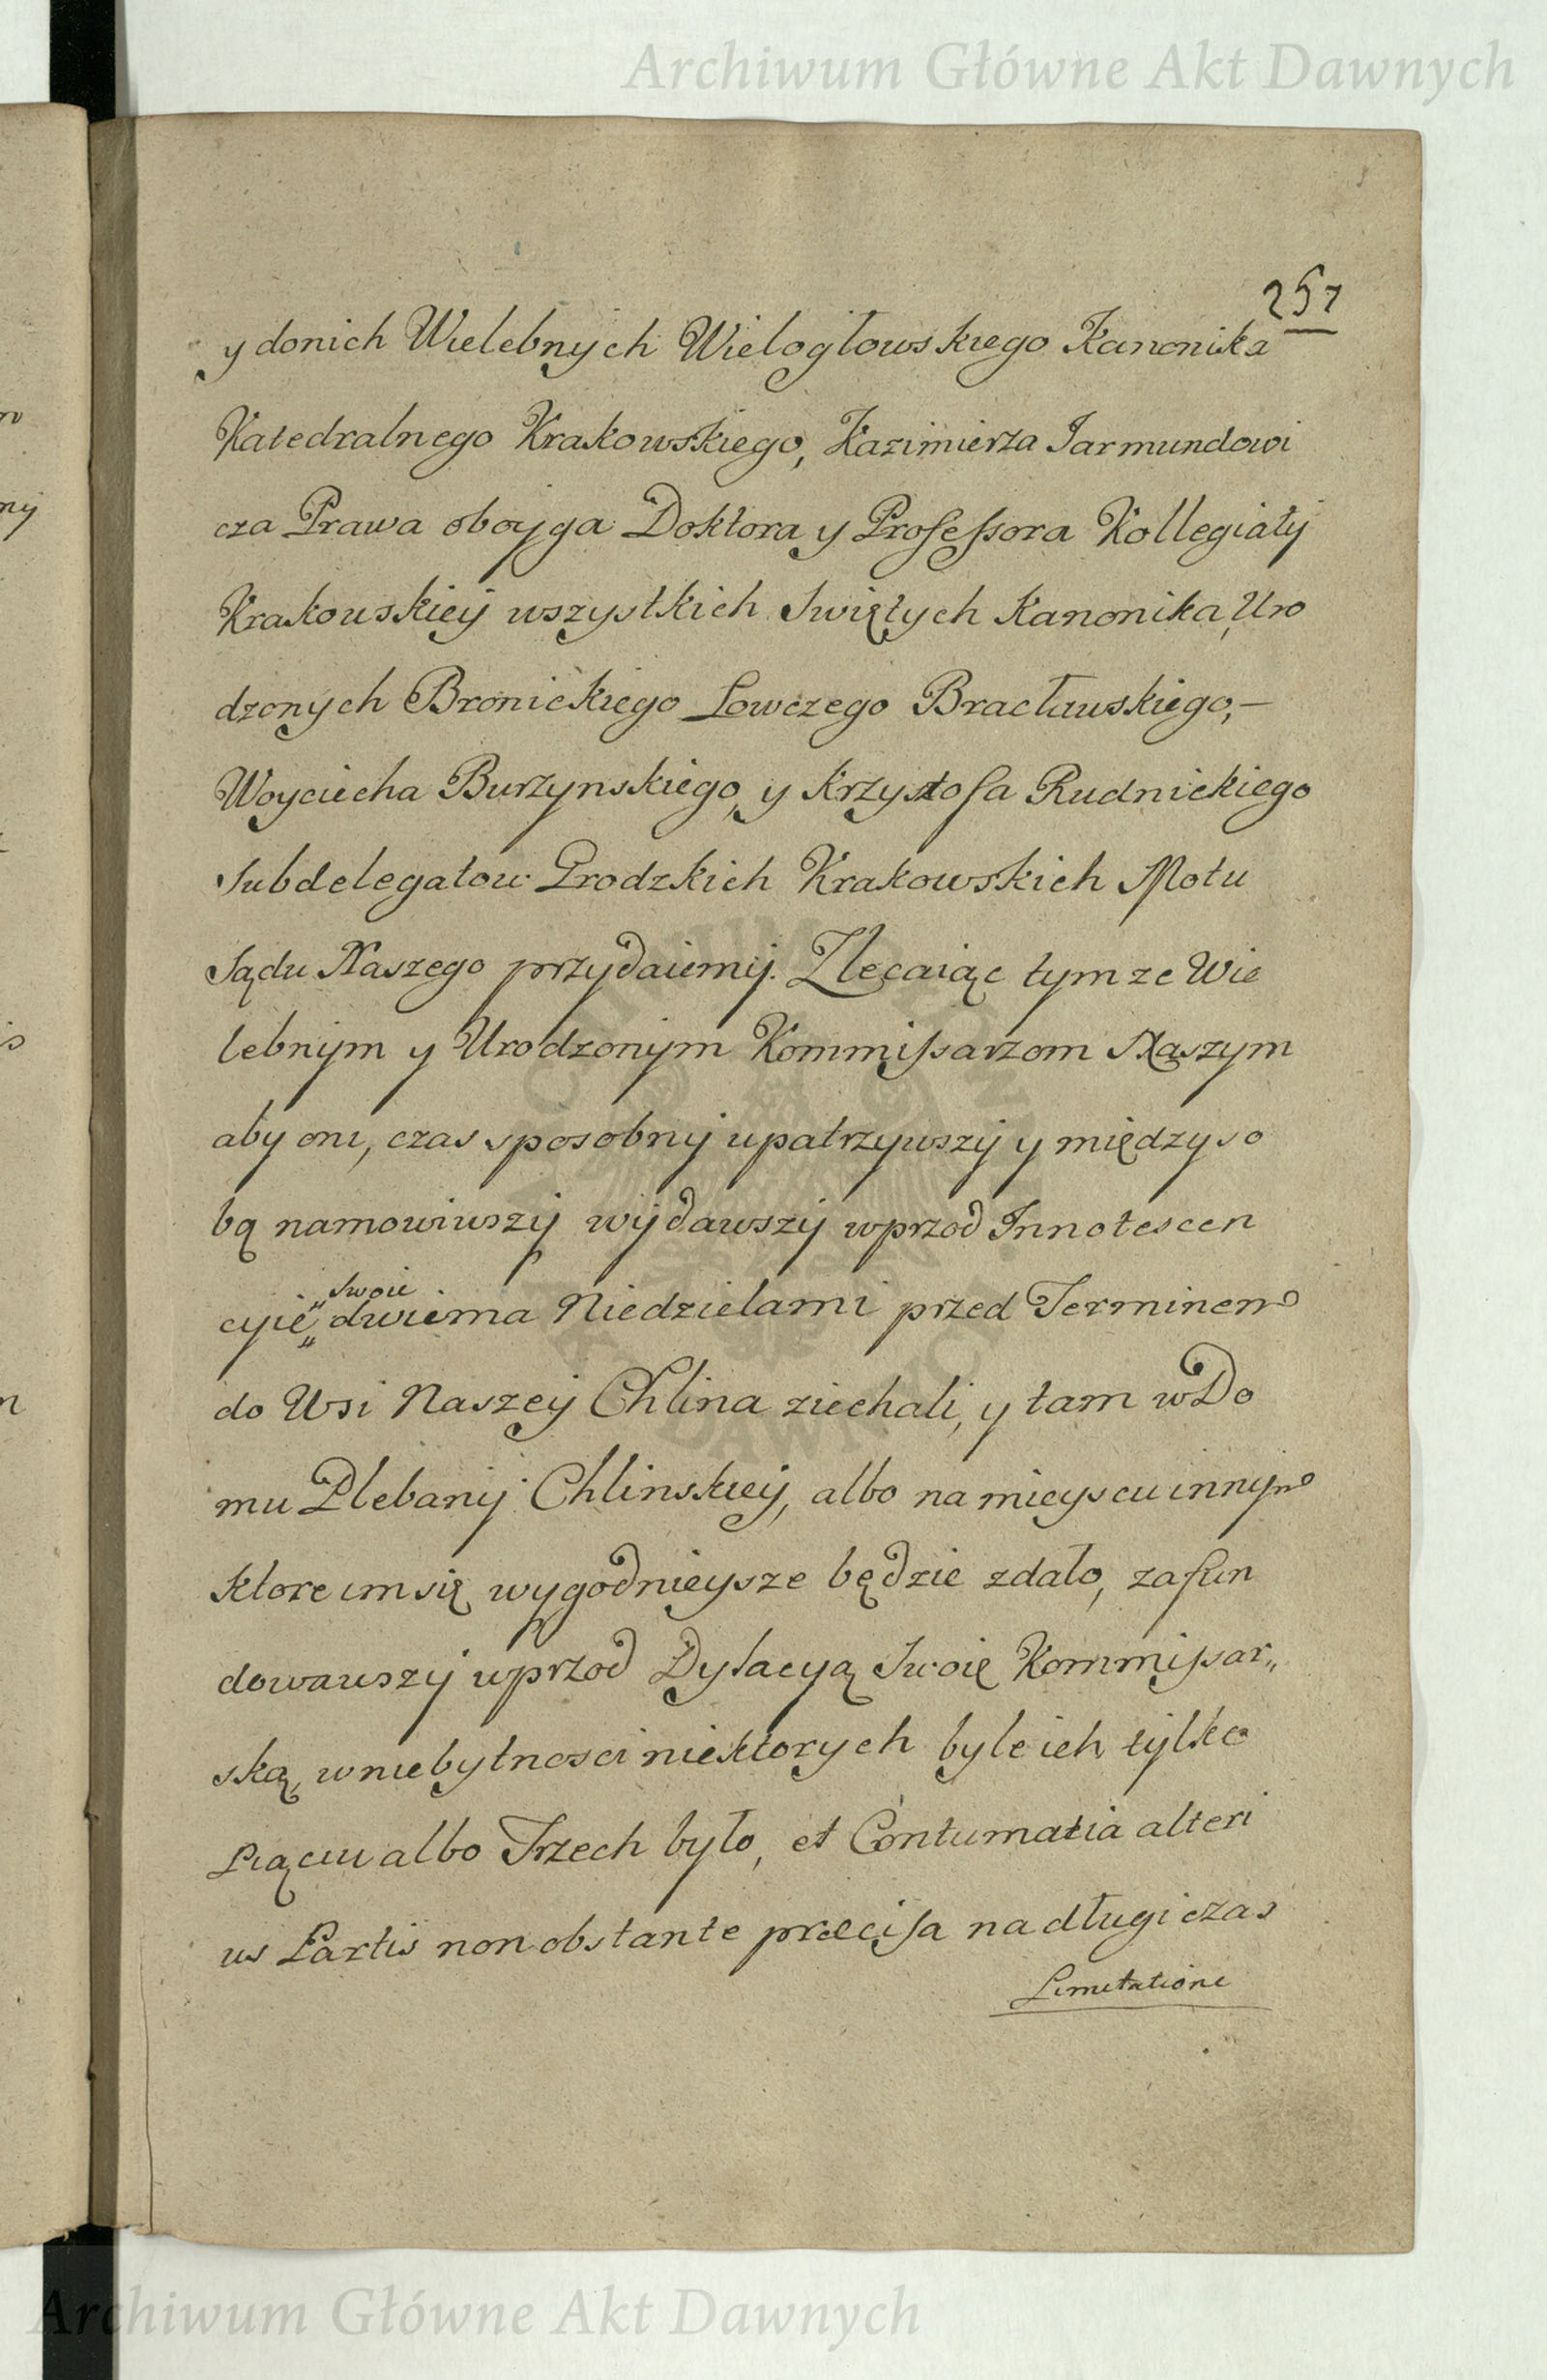 Archiwum Główne Akt Dawnych
257
y donich Wielebnych Wielogłowskiego Kanonika
Katedralnego Krakowskiego, Kazimierza Jarmundowi
cza Prawa oboyga Doktora y Professora Kollegiaty
Krakowskiey wszystkich Swiętych Kanonika, Uro
dzonych Bronickiego Łowczego Bracławskiego, –
Woyciecha Burzynskiego, y Krzysztofa Rudnickiego
Subdelegatow Grodzkich Krakowskich Motu
Sądu Naszego przydaiemy. Zlecaiąc tym ze Wie
lebnym y Urodzonym Kommissarzom Naszym
aby oni, czas sposobny upatrzywszy y między so
bą namowiwszy wydawszy wprzod Innotescen
cyię „swoie„ dwiema Niedzielami przed Terminem
do Wsi Naszey Chlina ziechali, y tam w Do
mu Plebany Chlinskiey, albo na mieyscu innym
ktore im się wygodnieysze będzie zdało, zafun
dowawszy wprzod Dylacyą Swoię Kommissar„
ską, w niebytnosci niektorych byle ich tylko
Piąciu albo Trzech było, et Contumatia alteri
us Partis non obstante præcisa na długi czas
Limitatione
Archiwum Główne Akt Dawnych